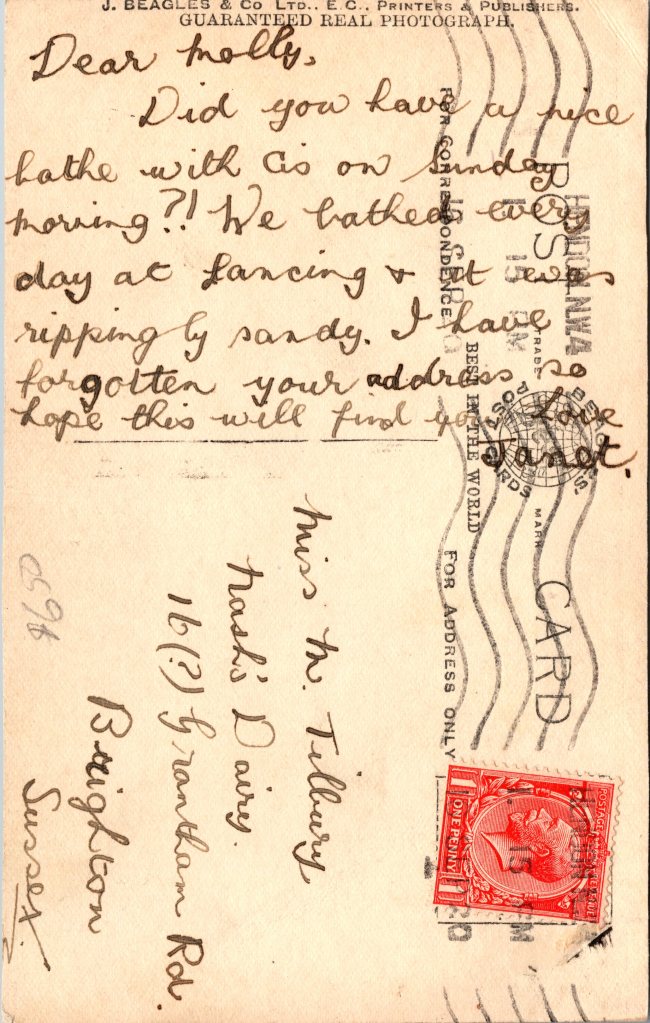 J. BEAGLES & CO LTD., E.C., PRINTERS & PUBLISHERS.
GUARANTEED REAL PHOTOGRAPH.
Dear Molly,
Did you have a nice
bathe with Cis on Sunday
morning?! We bathed every
day at Lancing & it was
rippingly sandy. I have
forgotten your address so
hope this will find you. Love
Janet.
POST CARD
TRADE MARK
BEAGLES' POST CARDS
BEST IN THE WORLD
FOR CORRESPONDENCE
FOR ADDRESS ONLY
HENDON. N.W.4
1. 15 PM
15 SEP
20
Miss M. Tilbury
Nash's Dairy.
16(?) Grantham Rd.
Brighton
Sussex.
POSTAGE
ONE PENNY
1
1